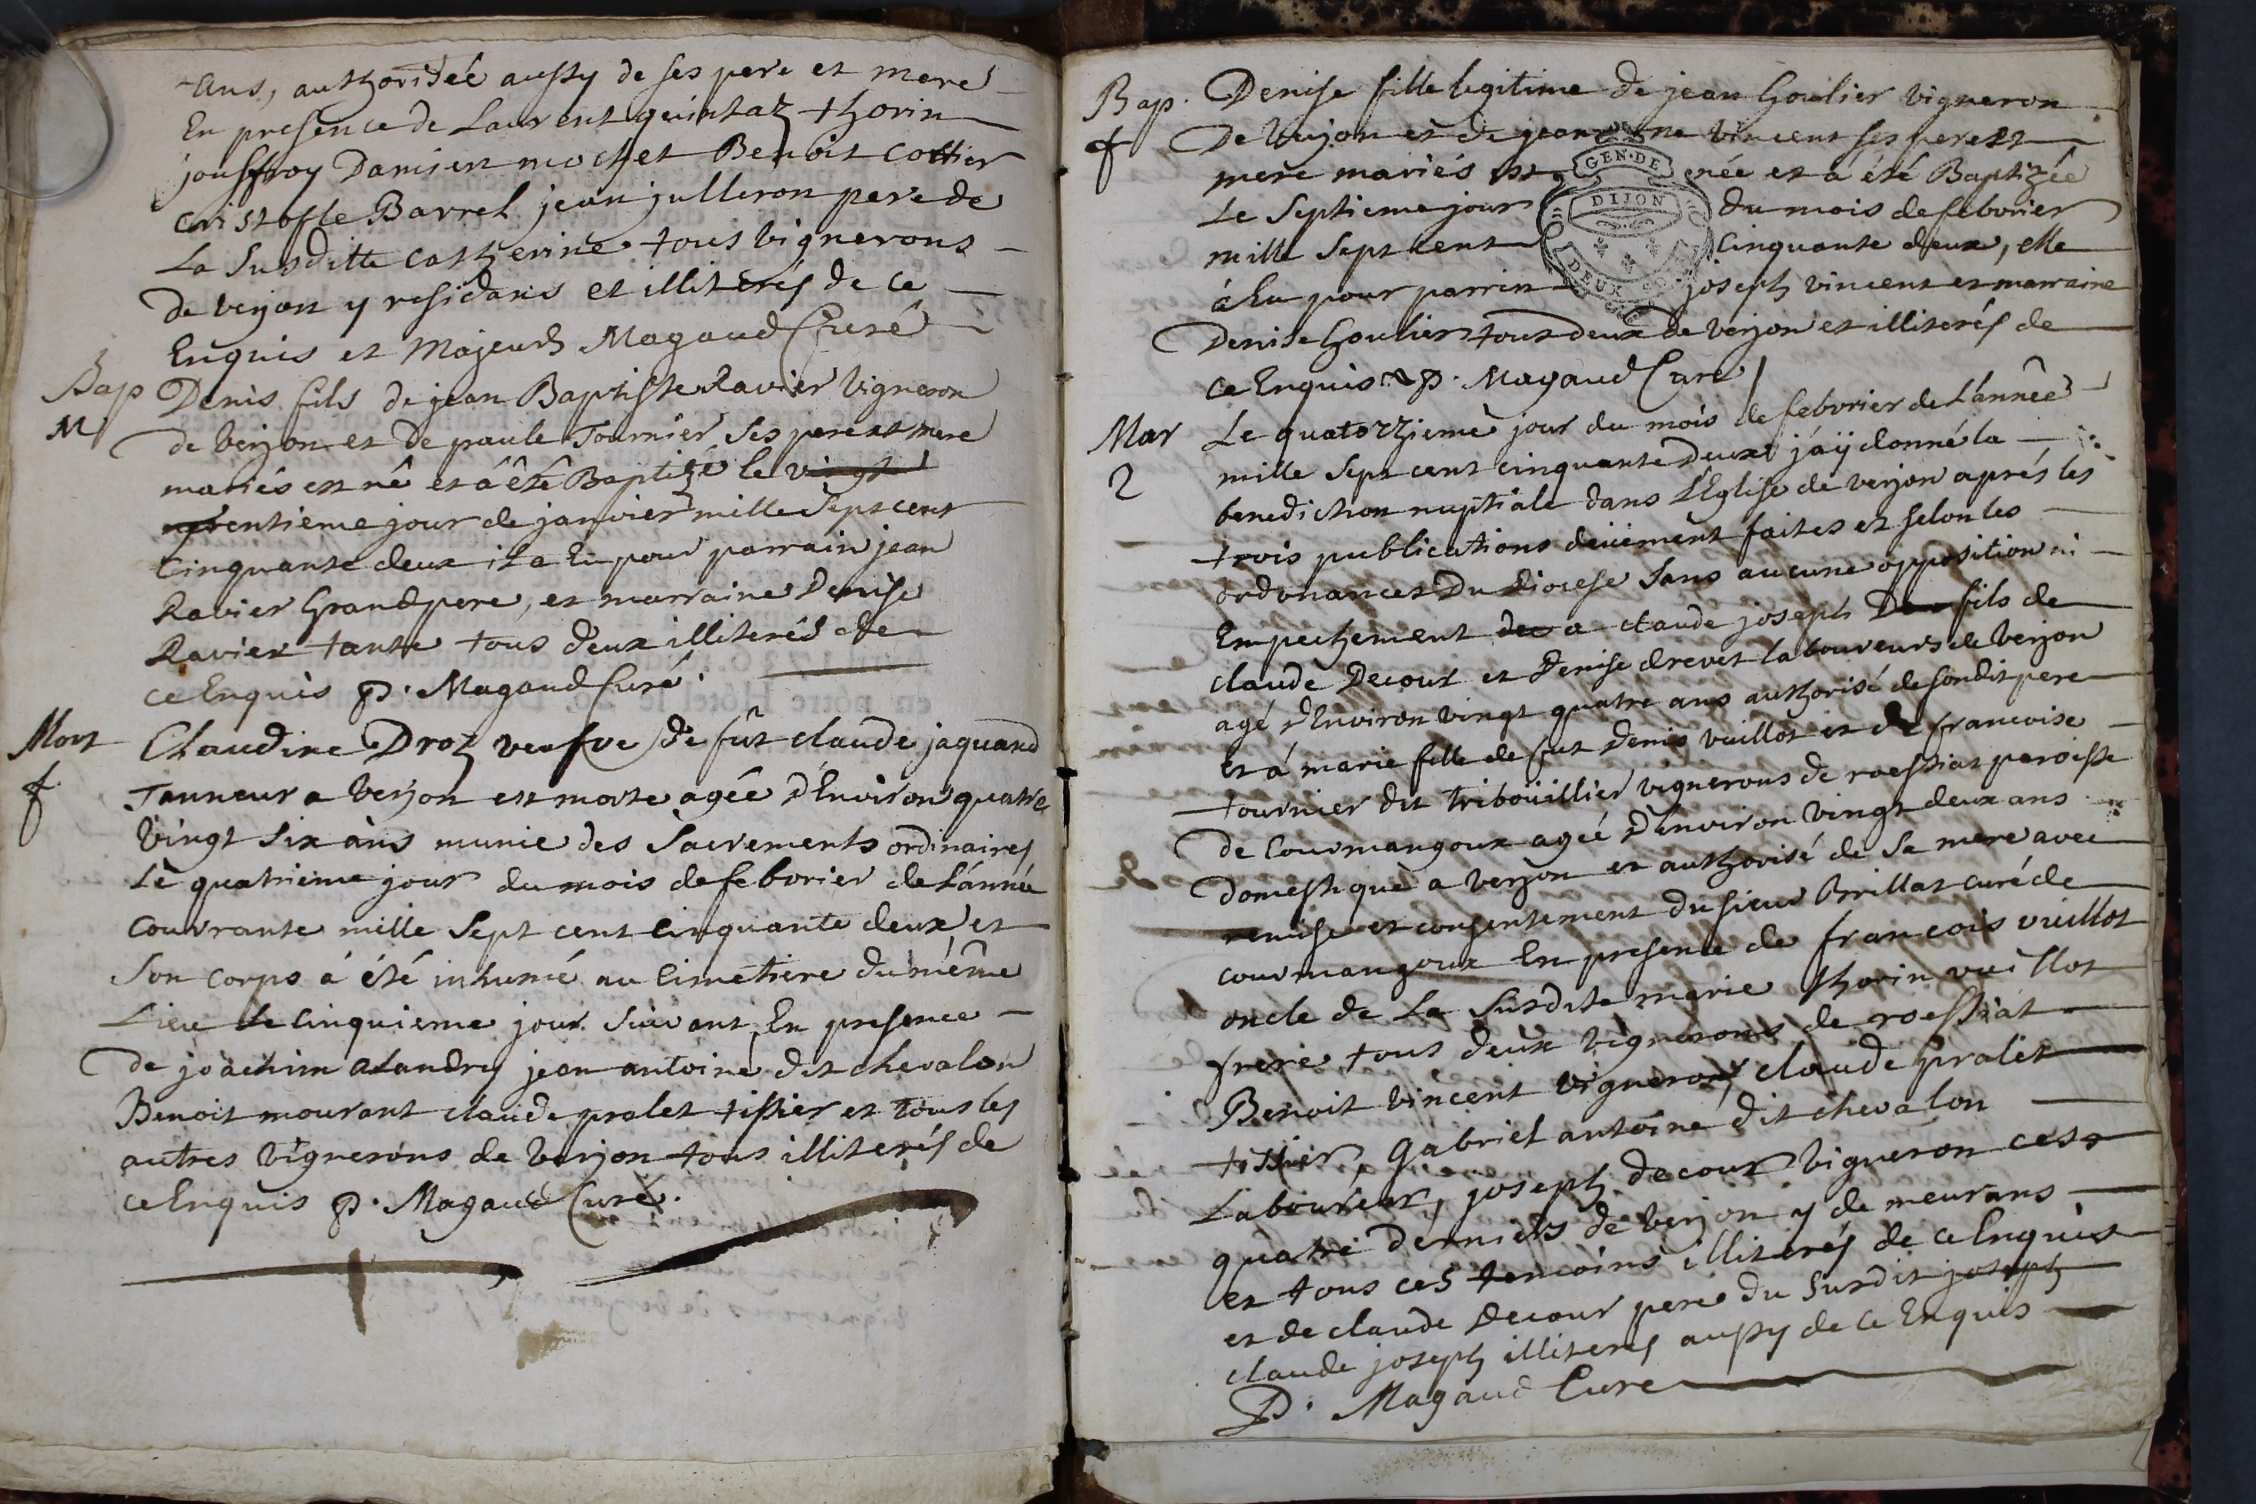 Ans, authorisée aussy de ses pere et mere
En presence de Laurent quintaz thorin
jouffroy Damien mochet Benoit cottier
cristofle Barrel jean julleron pere de
La Susditte catherine tous vignerons
de verjon y residans et illiterés de ce
Enquis et Majeurs Magaud Curé
Bap Denis fils de jean Baptiste Ravier vigneron
M de verjon et de paule Tournier ses pere et mere
mariés est né et á été Baptizé le vingt
trentieme jour de janvier mille Sept cent
Cinquante deux il a Eu pour parrain jean
Ravier Grandpere, et marraine Denise
Ravier tante tous deux illiterés de
ce Enquis P. Magaud Curé.
Mort Claudine Droz veufve de fût claude jaquand
f Tanneur a Verjon est morte agée d'Environ quatre
vingt six ans munie des Sacrements ordinaires
Le quatrieme jour du mois de febvrier de L'année
Courrante mille Sept cent Cinquante deux et
Son corps á été inhumé au Cimetiere du même
Lieu Le Cinquieme jour Suivant En presence
de joachim alandry jean antoine dit chevalon
Benoit mourant claude pralet tissier et tous les
autres vignerons de Verjon tous illiterés de
ce Enquis P. Magaud Curé.
Bap. Denise fille legitime de jean Goulier vigneron
f De Verjon et de jeanne vincent ses pere et
mere mariés est née et á été Baptizée
GEN. DE
DIJON
DEUX
Le Septieme jour du mois de febvrier
mille Sept cent Cinquante deux, elle
á Eu pour parrin joseph vincent et marraine
Denise Goulier tous deux de verjon et illiterés de
ce Enquis P. Magaud Curé
Mar Le quatorzzieme jour du mois de febvrier de L'année
2 mille Sept cent cinquante Deux j'aÿ donné la
benediction nuptiale dans L'Eglise de verjon aprés les
trois publications deüement faites et selon les
ordonances Du Diocese Sans aucune opposition ni
Empechement a claude joseph fils de
claude Decour et Denise drevet laboureurs de Verjon
agé d'Environ vingt quatre ans authorisé de son dit pere
et á marie fille de fut Denis vuillot et de francoise
tournier dit triboüillier vignerons de roessiat paroisse
de Courmangoux agée d'Environ vingt deux ans
domestique a verjon et authorisé de Sa mere avec
remise et consentement du sieur Brillat curé de
Courmangoux En presence de francois vuillot
oncle de La Susdite marie thorin vuillot
frere tous deux vignerons de roessiat
Benoit vincent vigneron claude pralet
tissier, gabriel antoine dit chevalon
Laboureur, joseph decour vigneron ces
quatre derniers de verjon y demeurans
et tous ces temoins illiterés de ce Enquis
et de claude Decour pere du Susdit joseph
claude joseph illiterés aussy de ce Enquis
P. Magaud Cure